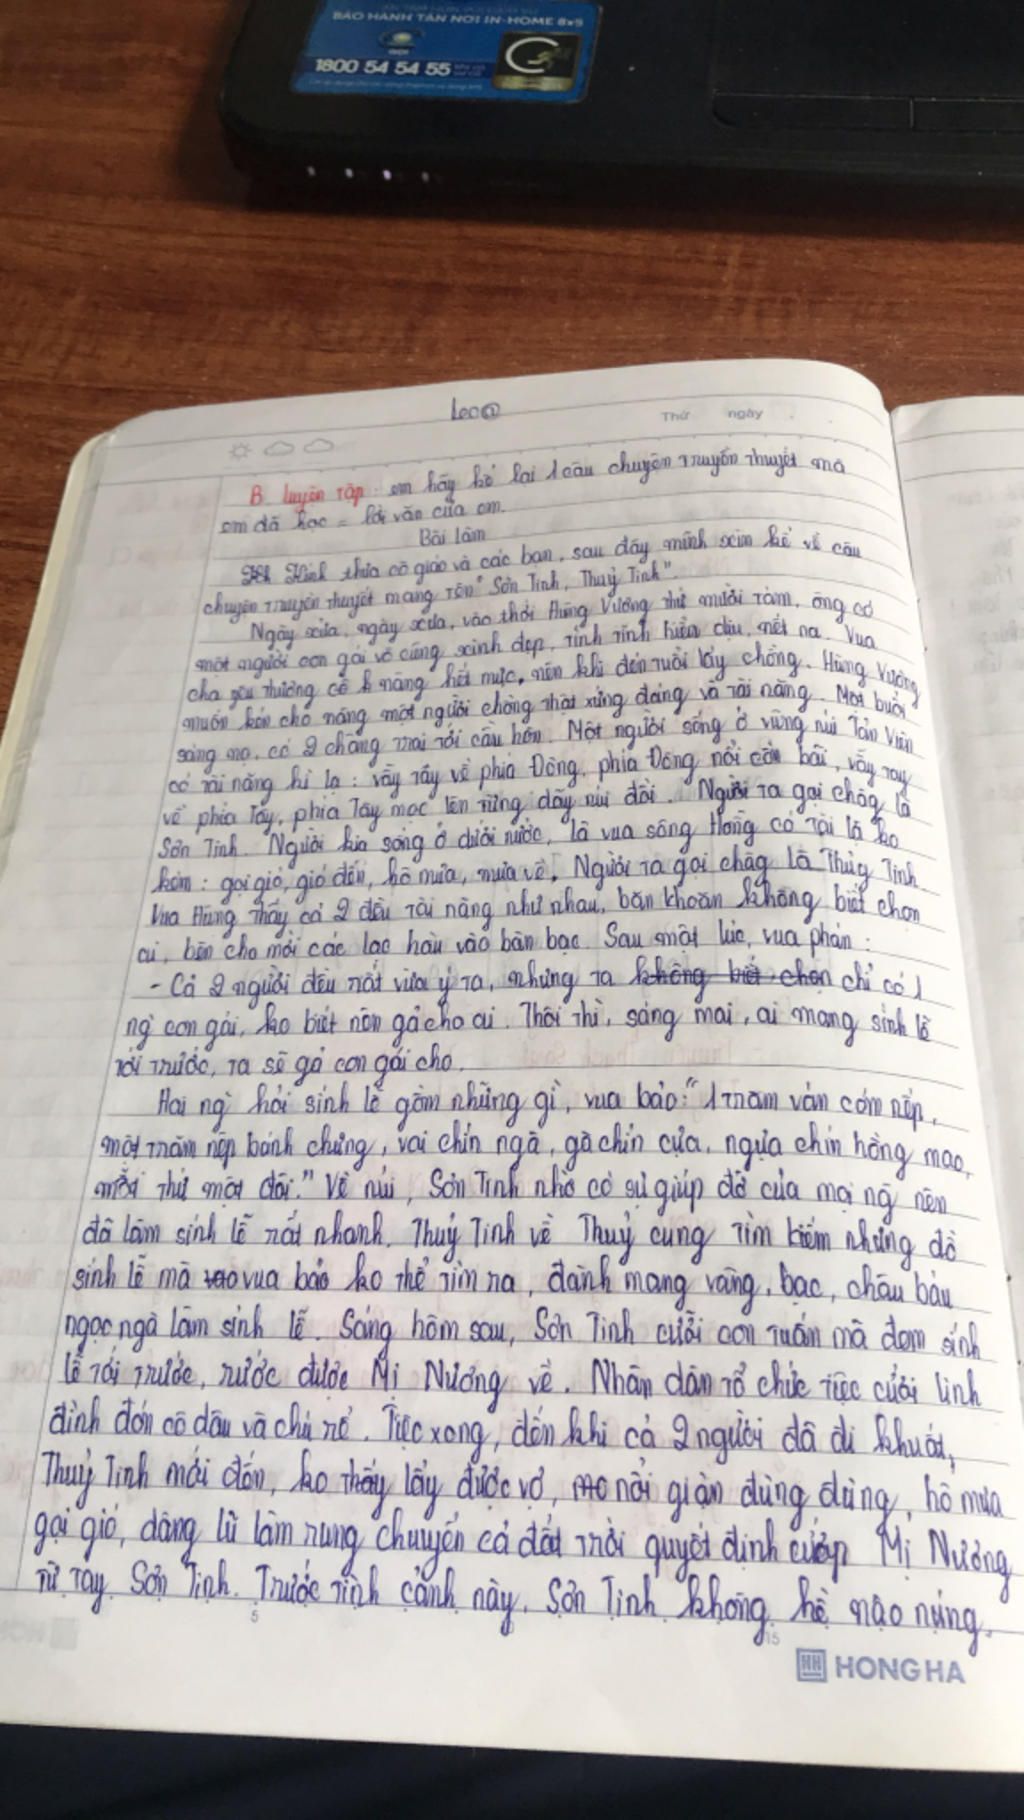 BẢO HÀNH TẬN NƠI IN-HOME 8x5
1800 54 54 55
Leo@
Thứ ngày
B. Luyện tập: em hãy kể lại 1 câu chuyện truyền thuyết mà
em đã học = lời văn của em.
Bài làm
Kính thưa cô giáo và các bạn, sau đây mình xin kể về câu
chuyện truyền thuyết mang tên "Sơn Tinh, Thuỷ Tinh".
Ngày xửa, ngày xưa, vào thời Hùng Vương thứ mười tám, ông có
một người con gái vô cùng xinh đẹp, tính tình hiền dịu, nết na. Vua
cha yêu thương nàng hết mực, nên khi đến tuổi lấy chồng, Hùng Vương
muốn kén cho nàng một người chồng thật xứng đáng và tài năng. Một buổi
sáng nọ, có 2 chàng trai tới cầu hôn. Một người sống ở vùng núi Tản Viên
có tài năng kì lạ: vẫy tay về phía Đông, phía Đông nổi cồn bãi, vẫy tay
về phía Tây, phía Tây mọc lên từng dãy núi đồi. Người ta gọi chàg là
Sơn Tinh. Người kia sống ở dưới nước, là vua sông Hồng có tài lạ ko
kém: gọi gió, gió đến, hô mưa, mưa về. Người ta gọi chàg là Thủy Tinh
Vua Hùng thấy cả 2 đều tài năng như nhau, băn khoăn không biết chọn
ai, bèn cho mời các lạc hầu vào bàn bạc. Sau một lúc, vua phán:
- Cả 2 người đều rất vừa ý ta, nhưng ta không biết chọn chỉ có 1
ng` con gái, ko biết nên gả cho ai. Thôi thì, sáng mai, ai mang sính lễ
tới trước, ta sẽ gả con gái cho.
Hai ng` hỏi sính lễ gồm những gì, vua bảo: "1 trăm ván cơm nếp,
một trăm nệp bánh chưng, voi chín ngà, gà chín cựa, ngựa chín hồng mao,
mỗi thứ một đôi." Về núi, Sơn Tinh nhờ có sự giúp đỡ của mọi ng nên
đã làm sính lễ rất nhanh. Thuỷ Tinh về Thuỷ cung tìm kiếm những đồ
sính lễ mà vua bảo ko thể tìm ra, đành mang vàng, bạc, châu báu
ngọc ngà làm sính lễ. Sáng hôm sau, Sơn Tinh cưỡi con tuấn mã đem sính
lễ tới trước, rước được Mị Nương về. Nhân dân tổ chức tiệc cưới linh
đình đón cô dâu và chú rể. Tiệc xong, đến khi cả 2 người đã đi khuất,
Thuỷ Tinh mới đến, ko thấy lấy được vợ, nổi giận đùng đùng, hô mưa
gọi gió, dâng lũ làm rung chuyển cả đất trời quyết định cướp Mị Nương
từ tay Sơn Tinh. Trước tình cảnh này, Sơn Tinh không hề nao núng.
5
15
HONG HA